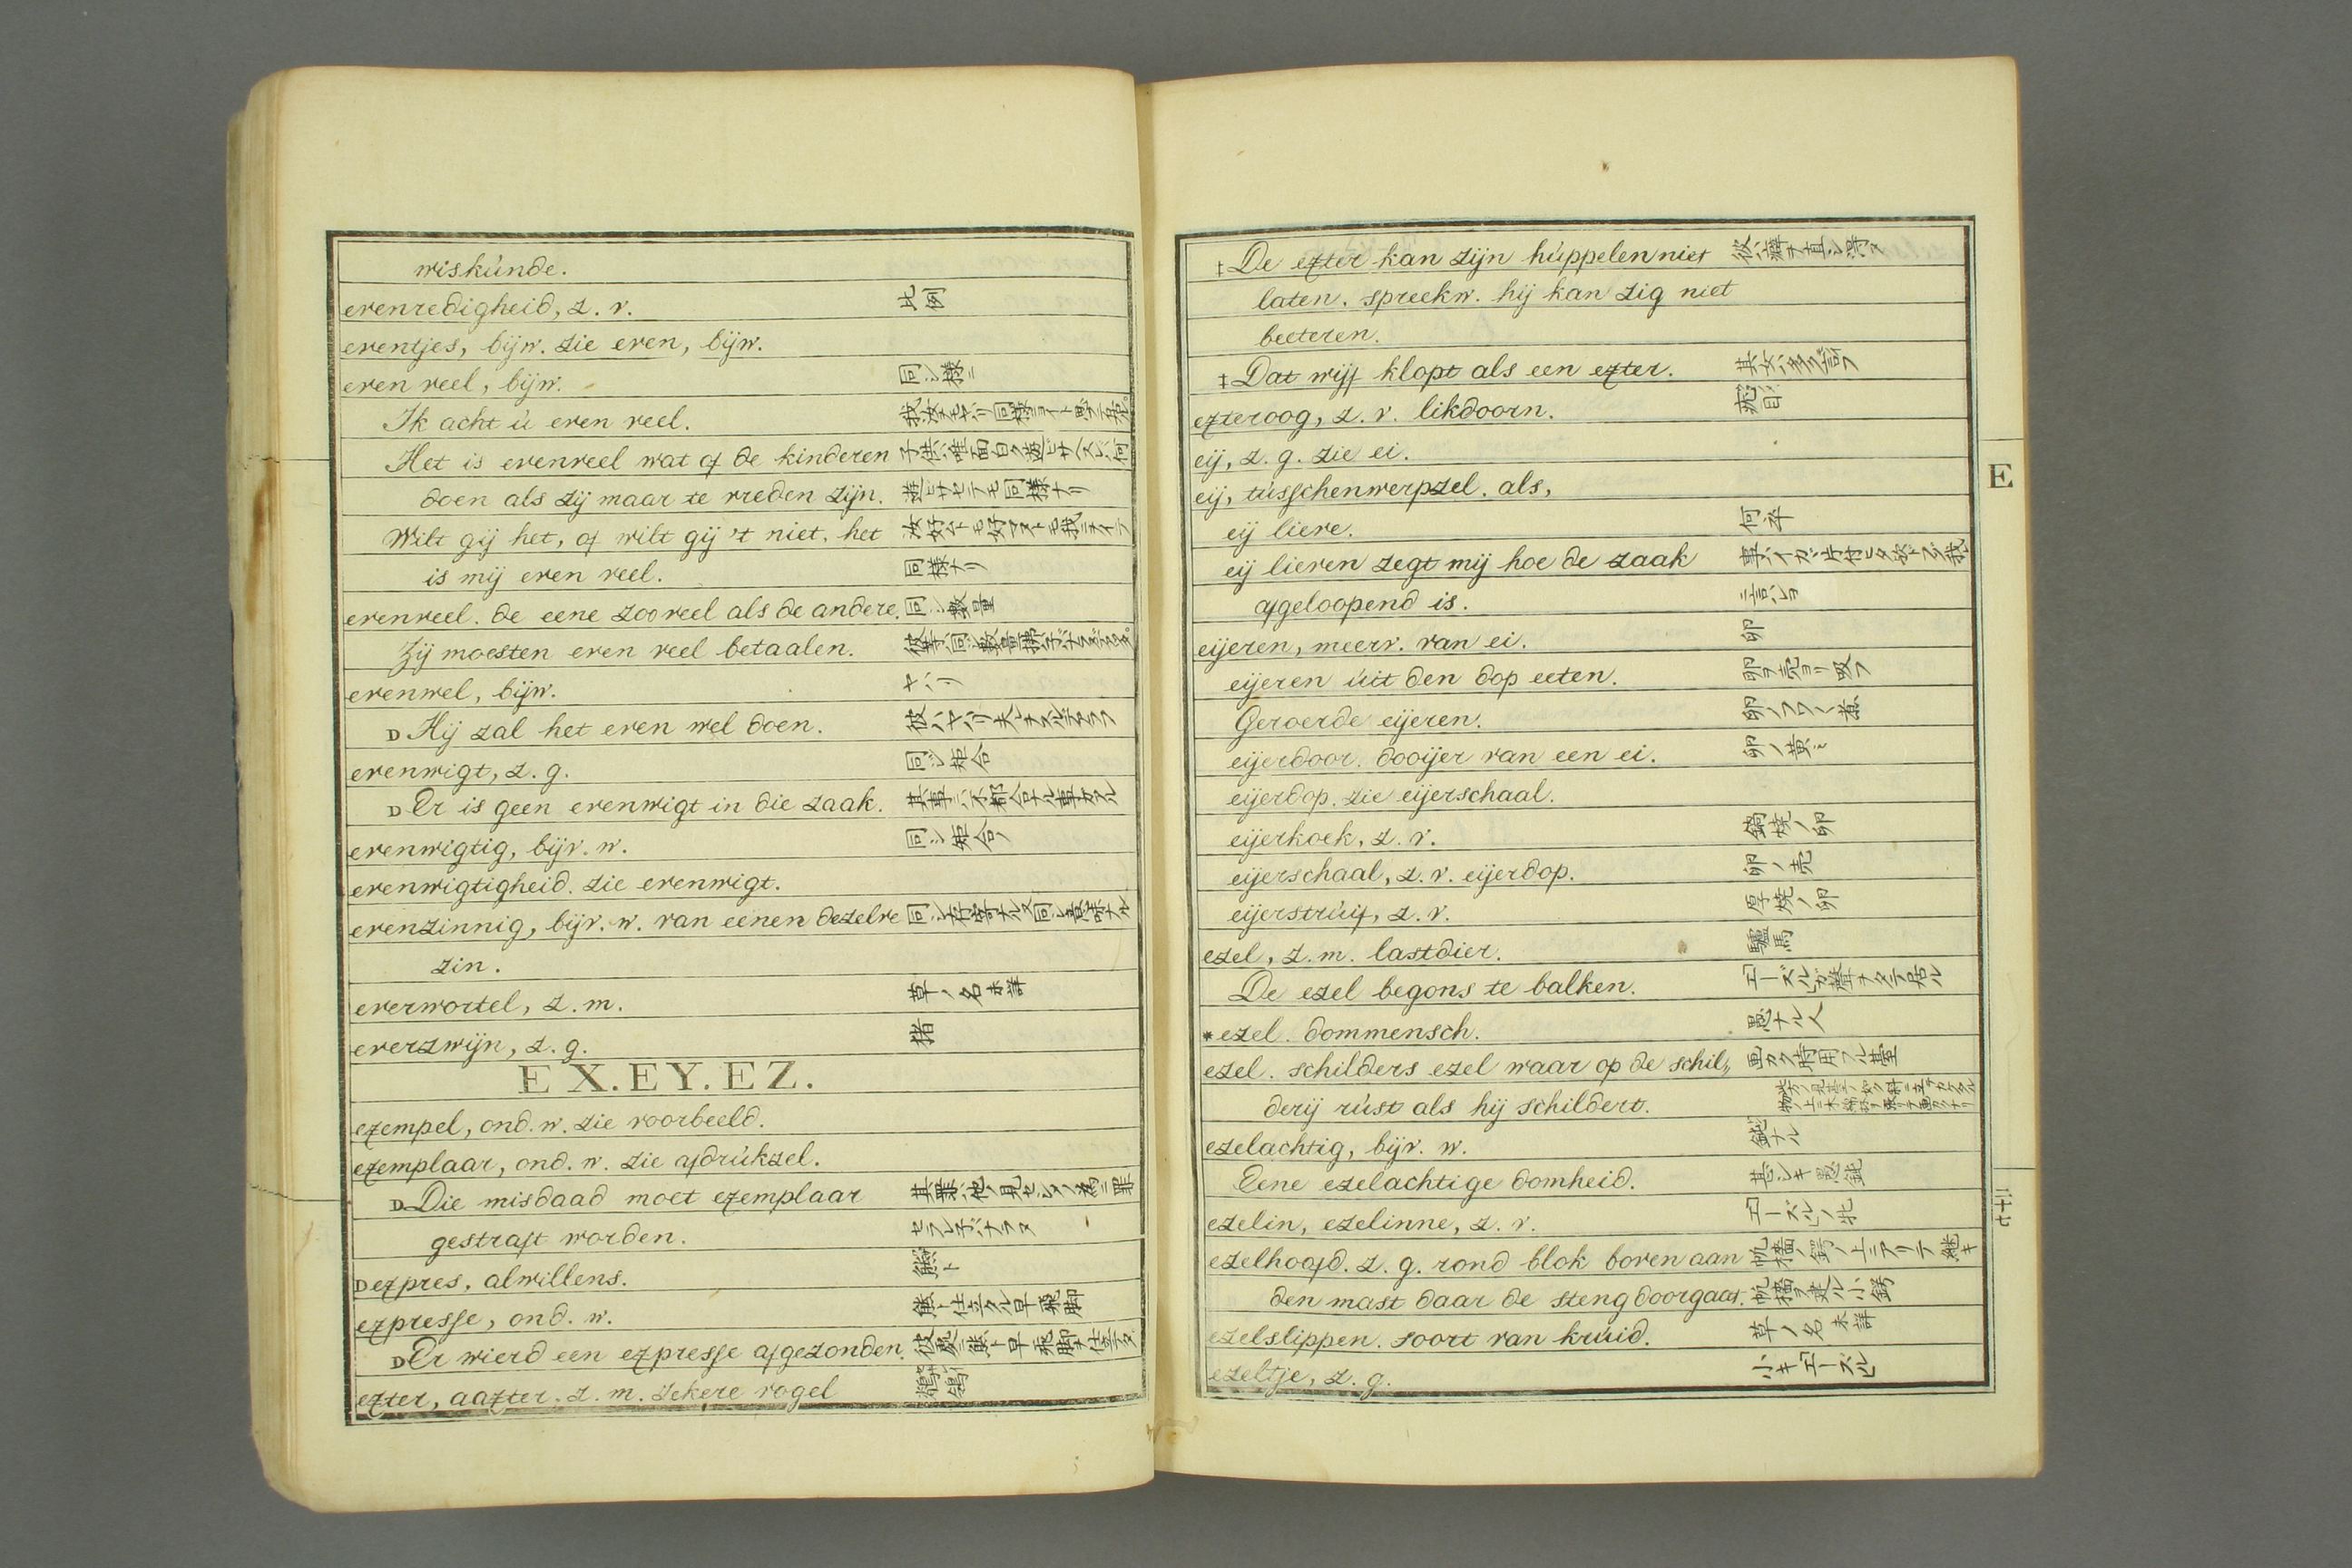 wiskúnde.
evenredigheid, z. v. 比例
eventjes, bijw. zie even, bijw.
even veel, bijw. 同シ様ニ
Ik acht ú even veel.
Het is evenveel wat of de kinderen
doen als zij maar te vreden zijn. 遊ビサセテモ同様ナリ
Wilt gij het, of wilt gij 't niet, het
is mij even veel. 同様ナリ
evenveel. de eene zoo veel als de andere. 同シ数量
Zij moesten even veel betaalen.
evenwel, bijw. ヤハリ
D Hij zal het even wel doen.
evenwigt, z. g. 同シ矩合
D Er is geen evenwigt in die zaak.
evenwigtig, bijv. w. 同シ矩合ノ
evenwigtigheid. zie evenwigt.
evenzinnig, bijv. w. van eenen dezelve
zin.
everwortel, z. m. 草ノ名未詳
everzwijn, z. g. 猪
EX. EY. EZ.
exempel, ond. w. zie voorbeeld.
exemplaar, ond. w. zie afdrúkzel.
D Die misdaad moet exemplaar
gestraft worden. セラレネバナラヌ
D expres, alwillens. 態ト
expresse, ond. w. 態ト仕立タル早飛脚
D Er wierd een expresse afgezonden.
exter, aaxter, z. m. zekere vogel
‡ De exter kan zijn húppelen niet 彼ハ癖ヲ直シ得ヌ
laten. spreekw. hij kan zig niet
beeteren.
‡ Dat wijf klopt als een exter.
exteroog, z. v. likdoorn.
eij, z. g. zie ei.
eij, tússchenwerpzel. als,
eij lieve. 何卒
eij lieven zegt mij hoe de zaak
afgeloopend is.
eijeren, meerv. van ei. 卵
eijeren úit den dop eeten. 卵ヲ売ヨリ吸フ
Geroerde eijeren.
eijerdoor. dooijer van een ei. 卵ノ黄ミ
eijerdop. zie eijerschaal.
eijerkoek, z. v. 鍋焼ノ卵
eijerschaal, z. v. eijerdop. 卵ノ売
eijerstrúif, z. v. 厚焼ノ卵
ezel, z. m. lastdier. 驢馬
De ezel begons te balken.
* ezel. dommensch. 愚ナル人
ezel. schilders ezel waar op de schil„ 画カク時用フル臺
derij rúst als hij schildert.
ezelachtig, bijv. w. 鈍ナル
Eene ezelachtige domheid. 甚シキ愚鈍
ezelin, ezelinne, z. v. エーズルノ牝
ezelhoofd. z. g. rond blok boven aan
den mast daar de steng doorgaat.
ezelslippen. soort van krúid. 草ノ名未詳
ezeltje, z. g. 小キエーズル
E